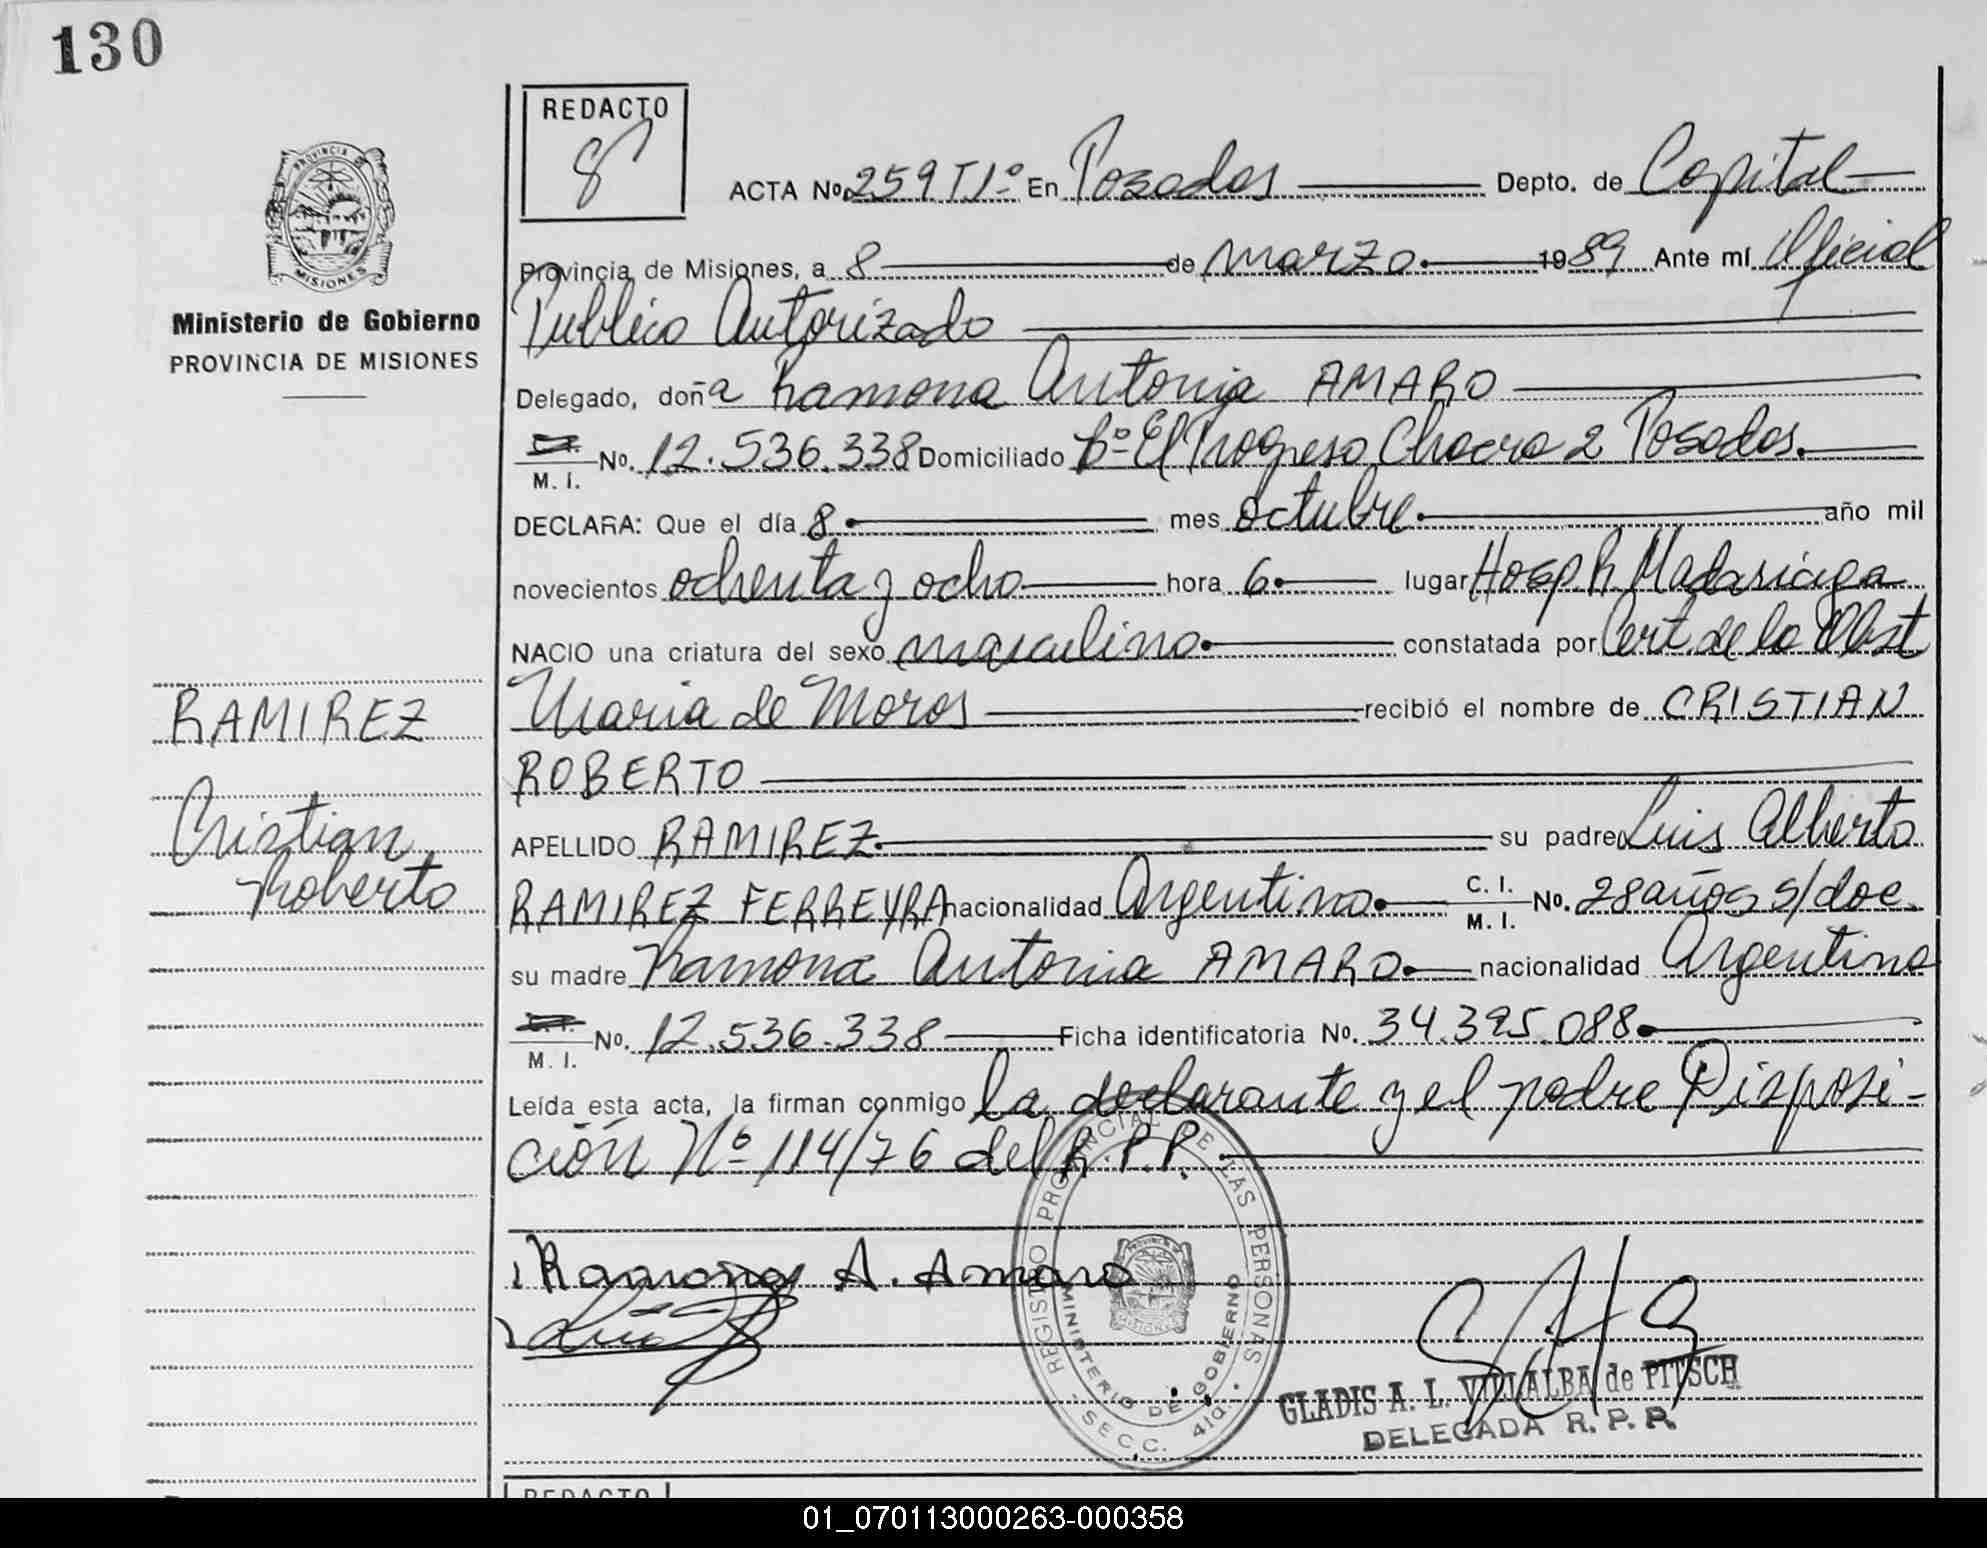 130
REDACTO
PROVINCIA DE
MISIONES
Ministerio de Gobierno
PROVINCIA DE MISIONES
ACTA No. 259 T1º En Posadas Depto. de Capital
Provincia de Misiones, a 8 de marzo 1989 Ante mí Oficial
Publico Autorizado
Delegado, doña Ramona Antonia AMARO
M. I. No. 12.536.338 Domiciliado Bº El Progreso Chacra 2 Posadas.
DECLARA: Que el día 8 mes octubre año mil
novecientos ochenta y ocho hora 6 lugar Hosp. R. Madariaga
NACIO una criatura del sexo masculino constatada por Cert. de la Obst
Maria de Moros recibió el nombre de CRISTIAN
ROBERTO
RAMIREZ
Cristian
Roberto
APELLIDO RAMIREZ su padre Luis Alberto
RAMIREZ FERREYRA nacionalidad Argentino C. I. M. I. No. 28 años s/doc.
su madre Ramona Antonia AMARO nacionalidad Argentina
M. I. No. 12.536.338 Ficha identificatoria No. 34.395.088
Leída esta acta, la firman conmigo la declarante y el padre Disposi-
ción Nº 114/76 del R.P.P.
Ramona A. Amaro
REGISTRO PROVINCIAL DE LAS PERSONAS
MINISTERIO DE GOBIERNO
SECC. 41a.
GLADIS A. L. VILLALBA de PITSCH
DELEGADA R. P. P.
REDACTO
01_070113000263-000358